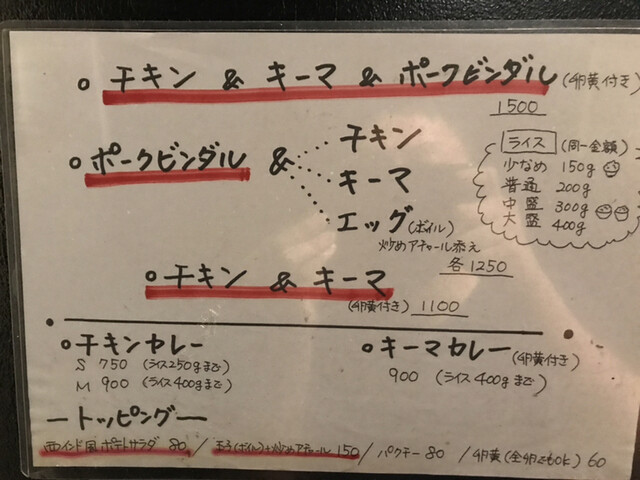 ○ チキン & キーマ & ポークビンダル (卵黄付き)
1500
○ ポークビンダル &
チキン
キーマ
エッグ(ボイル)
炒めアチャール添え
各1250
ライス (同一金額)
少なめ 150g
普通 200g
中盛 300g
大盛 400g
○ チキン & キーマ
(卵黄付き) 1100
○ チキンカレー
S 750 (ライス250gまで)
M 900 (ライス400gまで)
○ キーマカレー (卵黄付き)
900 (ライス400gまで)
ートッピングー
西インド風ポテトサラダ 80 / 玉子(ボイル)+炒めアチャール 150 / パクチー 80 / 卵黄(全卵でもok) 60